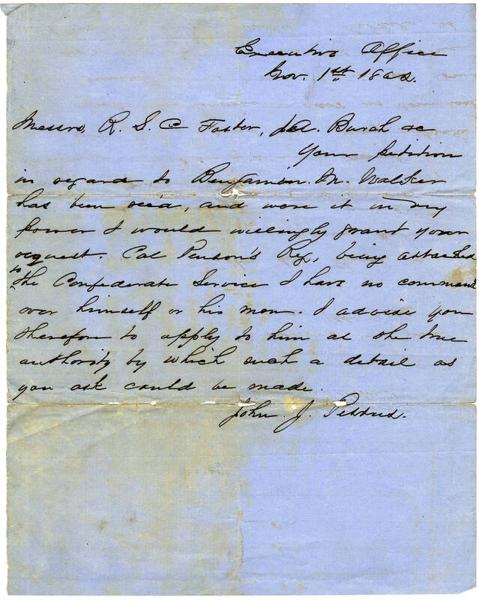 Executive Office
Nov. 1st 1862.
Messrs, R. S. C Foster, Burch &c
Your petition
in regard to Benjamin. M. Walker
has been rec'd, and were it in my
power I would willingly grant your
request. Col Person's Reg, being attached
to the Confederate Service I have no command
over himself or his men. I advise you
therefore to apply to him as the true
authority by which such a detail as
you ask could be made.
John J. Pettus.